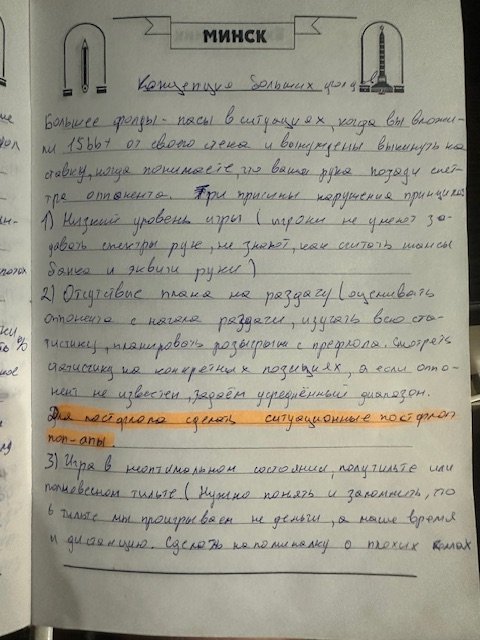 МИНСК
Концепция больших фолдов
Большие фолды - пасы в ситуациях, когда вы вложи-
ли 15bb+ от своего стека и вынуждены выкинуть на
ставку, когда понимаете, что ваша рука позади спек-
тра оппонента. Три причины нарушения принципов
1) Низкий уровень игры (игроки не умеют за-
давать спектры рук, не знают, как считать шансы
банка и эквити руки)
2) Отсутствие плана на раздачу (оценивать
оппонента с начала раздачи, изучать всю ста-
тистику, планировать розыгрыш с префлопа. Смотреть
статистику на конкретных позициях, а если оппо-
нент не известен, задаём усреднённый диапазон.
Для постфлопа сделать ситуационные постфлоп
поп-апы
3) Игра в неоптимальном состоянии, полутильте или
полновесном тильте (Нужно понять и запомнить, что
в тильте мы проигрываем не деньги, а наше время
и дистанцию. Сделать напоминалку о плохих колах